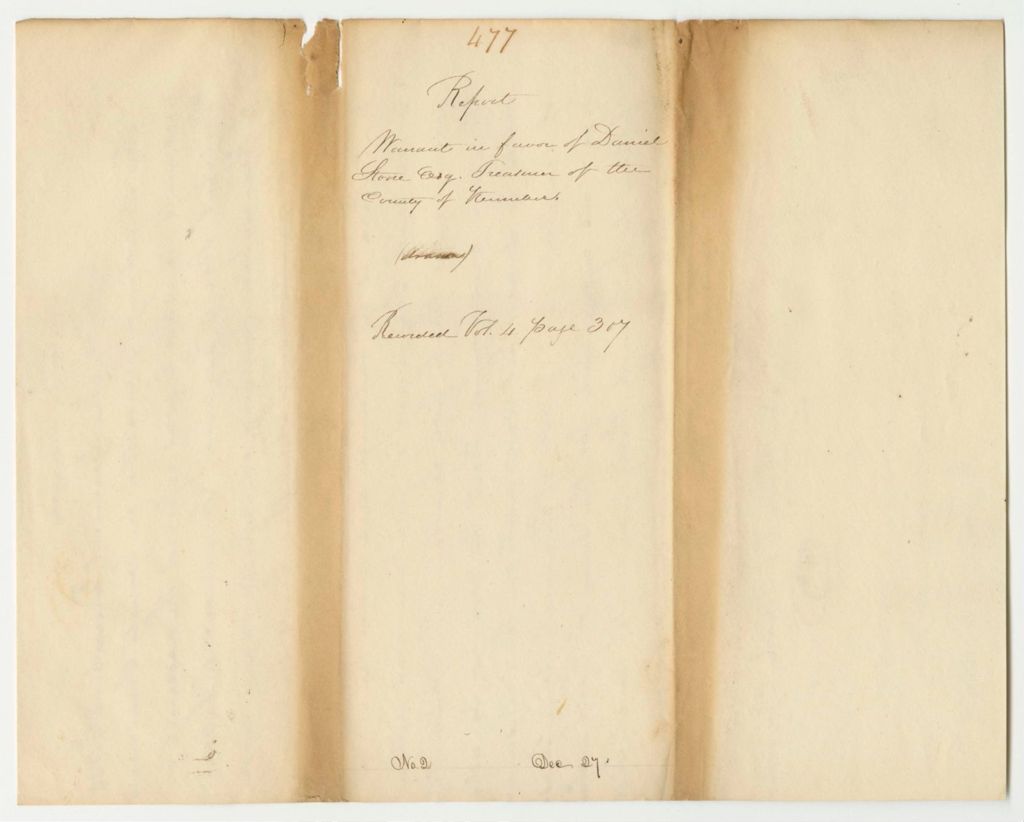 477
Report
Warrant in favor of Daniel
Stone Esq. Treasurer of the
County of Kennebec
Recorded Vol. 4 page 307
No 2 Dec 27